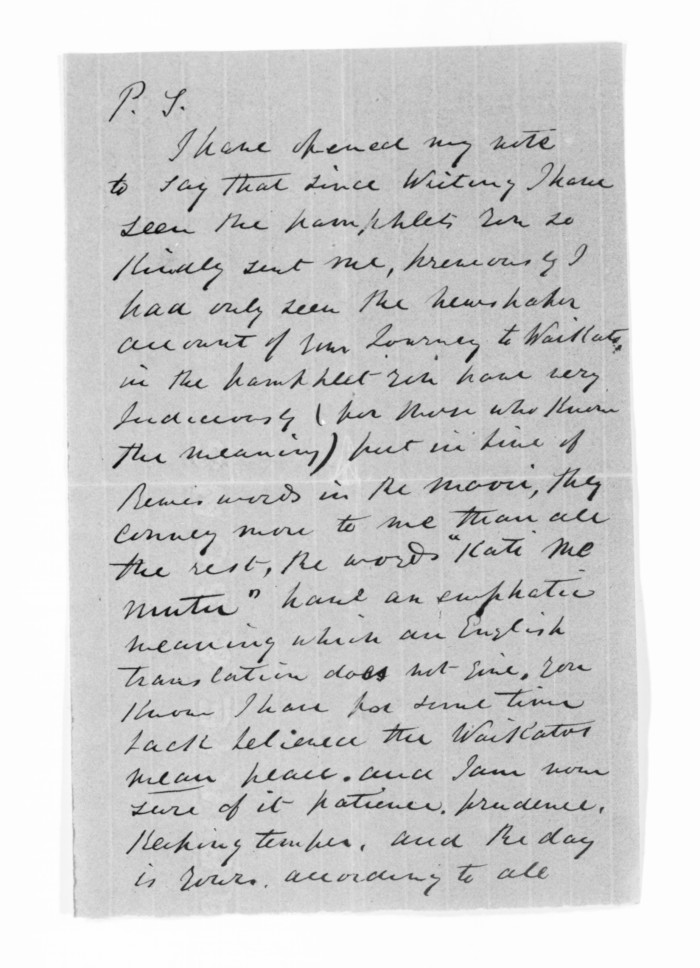 P. S.
I have opened my note
to say that since writing I have
seen the pamphlets you so
kindly sent me, previously I
had only seen the newspaper
account of your Journey to Waikato,
in the pamphlet you have very
Judiciously (for those who know
the meaning) put in some of
Rewis words in the maori, they
convey more to me than all
the rest, the words "Kati me
mutu" have an emphatic
meaning which an English
translation does not give, you
know I have for some time
back believed the Waikatos
mean peace. and I am now
sure of it patience. prudence.
Keeping temper. and the day
is yours. according to all